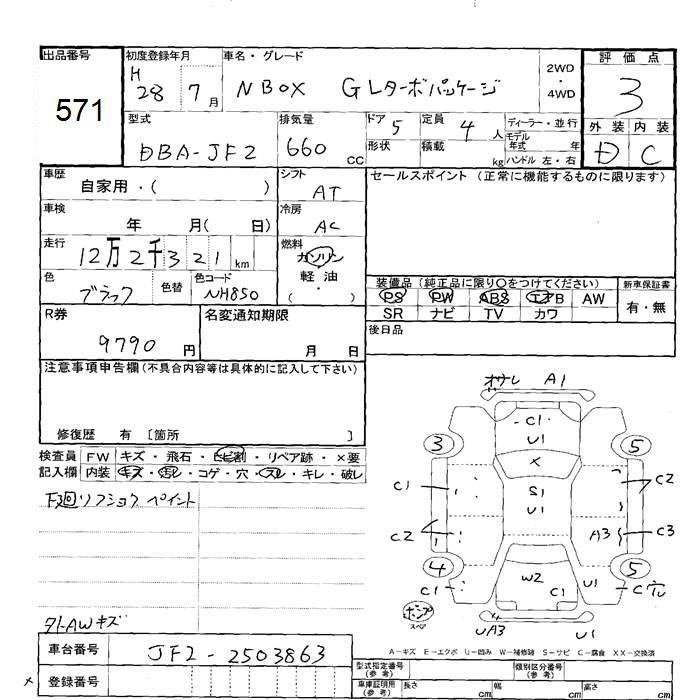 出品番号
571
初度登録年月
H 28 7月
車名・グレード
N BOX GLターボパッケージ
2WD
・
4WD
評価点
3
型式
DBA-JF2
排気量
660 CC
ドア 5
形状
定員 4 人
積載 kg
ディーラー・並行
モデル年式 年
ハンドル 左・右
外装 内装
D C
車歴
自家用・( )
シフト
AT
セールスポイント (正常に機能するものに限ります)
車検
年 月( 日)
冷房
AC
走行
12万2千321km
燃料
ガソリン
軽油
( ・ )
色
ブラック
色替
色コード
NH850
装備品(純正品に限り○をつけてください)
PS PW ABS エアB AW
SR ナビ TV カワ
新車保証書
有・無
R券
9790 円
名変通知期限
月 日
後日品
注意事項申告欄(不具合内容等は具体的に記入して下さい)
修復歴 有 〔箇所 〕
検査員
記入欄
FW キズ・飛石・ヒビ割・リペア跡・×要
内装 キズ・汚レ・コゲ・穴・スレ・キレ・破レ
下廻リフショク ペイント
A1
C1
U1
3 5
X
C1 C2
S1
U1
C2 A3 C3
4 5
W2
C1 C1 U1
スペア
UA3 U1
A-キズ E-エクボ U-凹み W-補修跡 S-サビ C-腐食 XX-交換済
外AWキズ
車台番号
JF2-2503863
登録番号
×
型式指定番号
(参考)
類別区分番号
(参考)
車庫証明用
(参考)
長さ cm
幅 cm
高さ cm